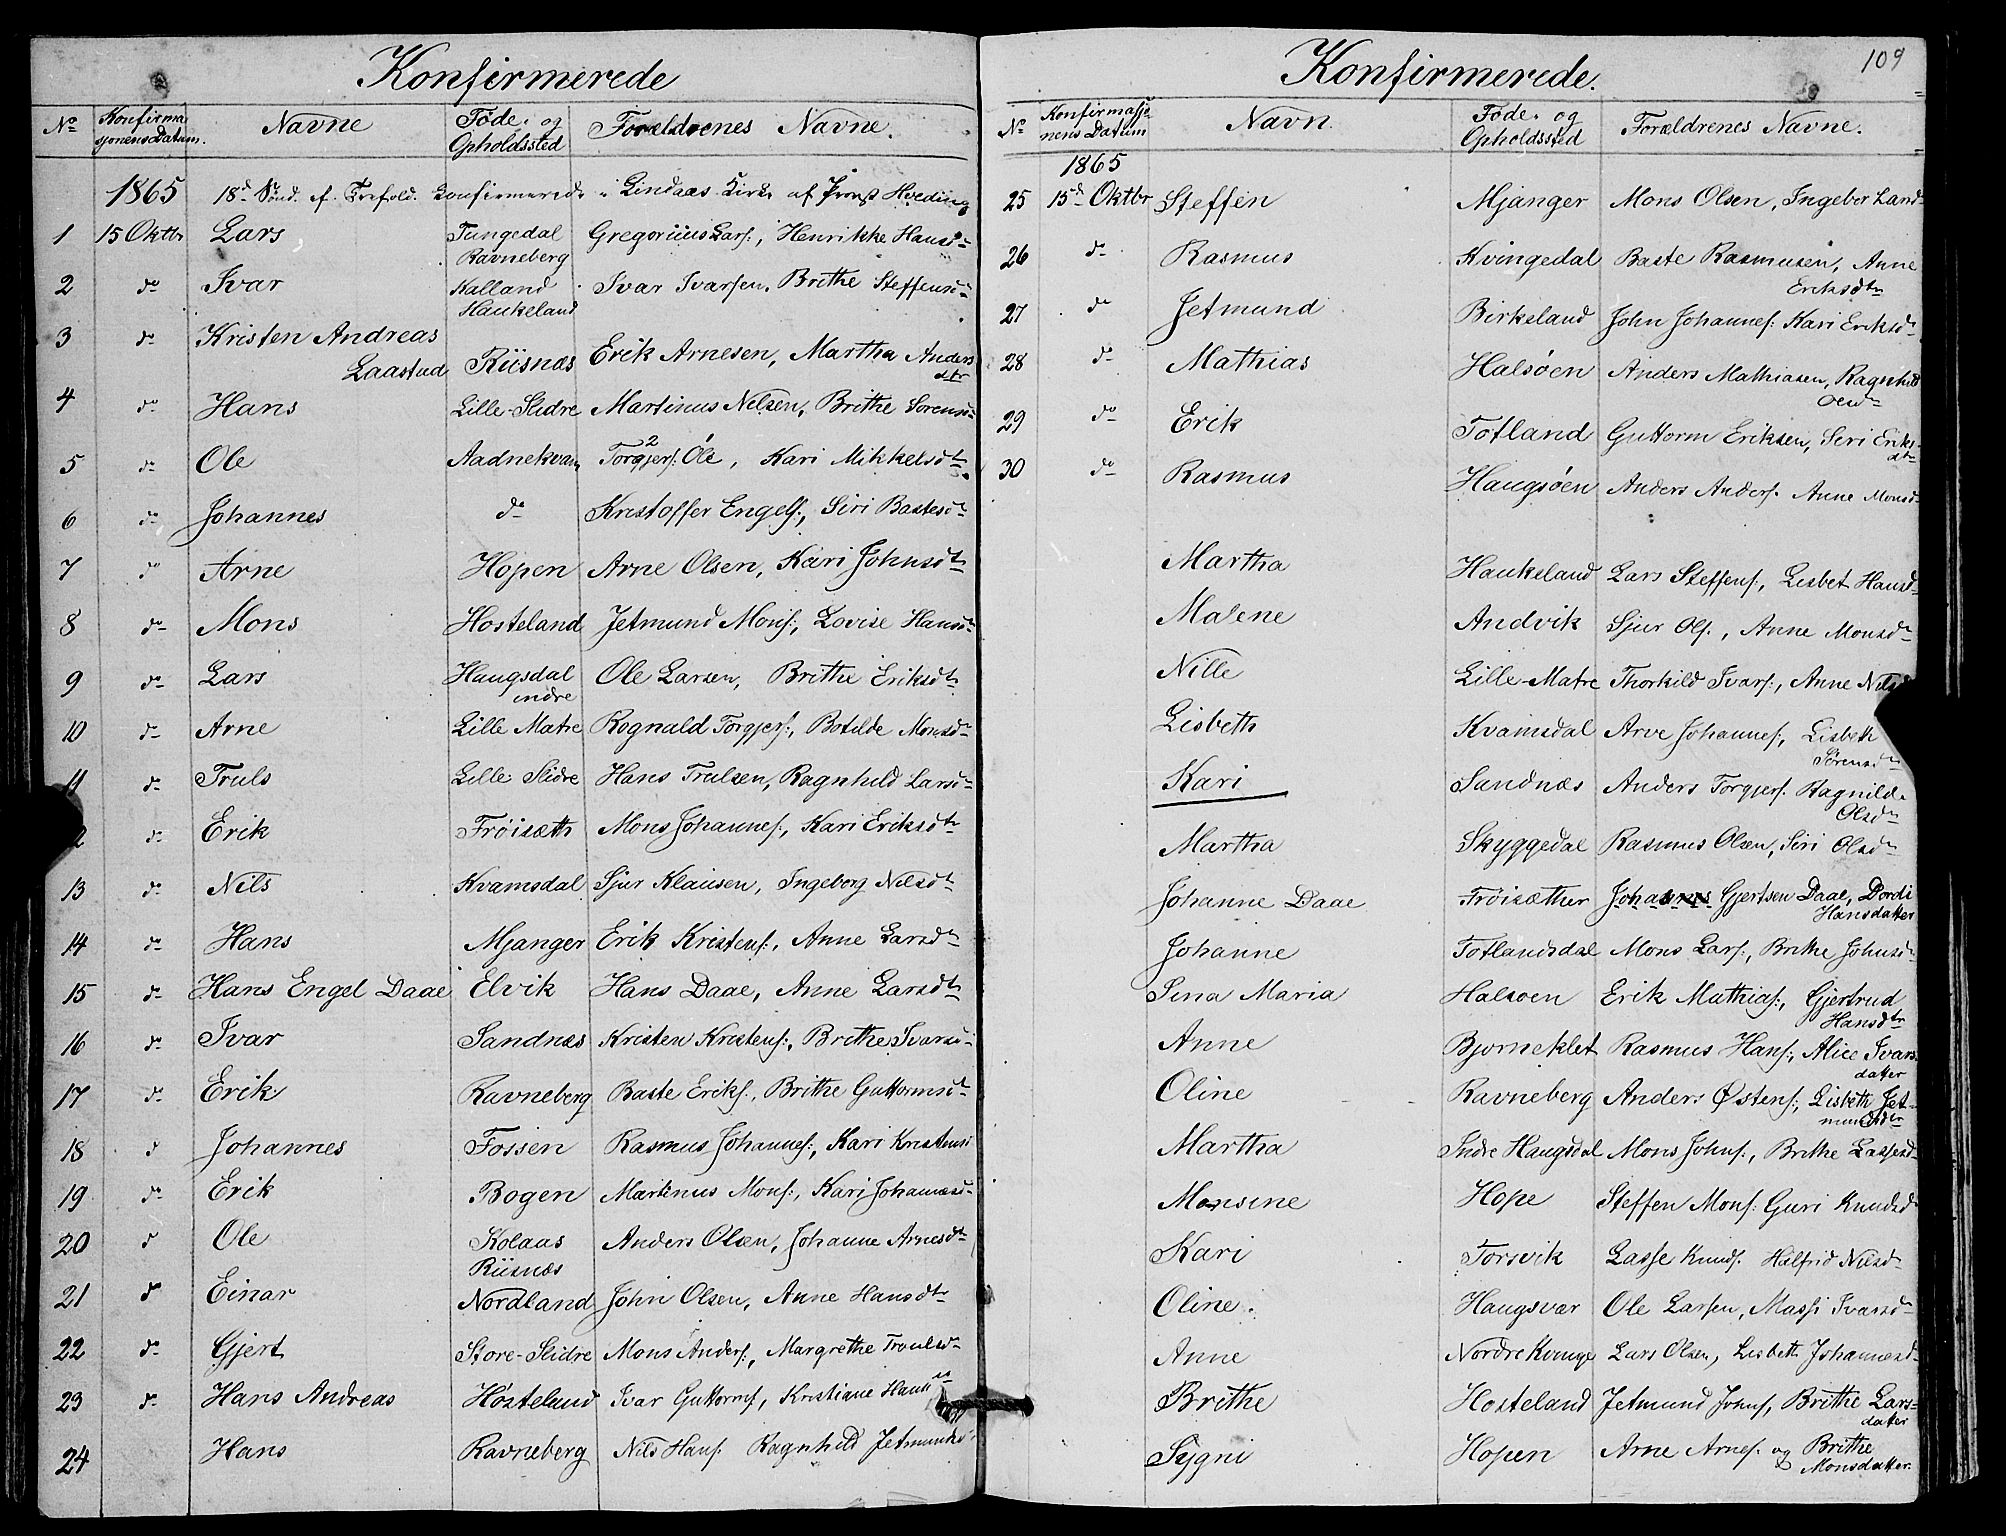 Konfirmerede
No Konfirma- Navne Føde- og Forældrenes Navne.
sjonens Datum. Opholdssted
1865 18d Sønd. ef. Trefold. Konfirmerede i Lindaas Kirke af Provst Hveding
1 15 Oktbr Lars Tungedal Gregorius Lars:, Henrikke Hansd
Ravneberg
2 do Ivar Kalland Ivar Ivarsen, Brithe Steffensd
Haukeland
3 do Kristen Andreas
Laastad Riisnæs Erik Arnesen, Martha Anders
dtr
4 do Hans Lille-Slidre Martinus Nelsen, Brithe Sorensd
5 do Ole Aadnekvam Torgjers: Ole, Kari Mikkelsdtr
6 do Johannes do Kristoffer Engels:, Siri Bastesdtr
7 do Arne Hopen Arne Olsen, Kari Johnsdtr
8 do Mons Hosteland Jetmund Mons:, Lovise Hansd
9 do Lars Haugsdal Ole Larsen, Brithe Eriksdtr
indre
10 do Arne Lille Matre Rognald Torgjers:, Botilde Monsd
11 do Truls Lille Slidre Hans Trulsen, Ragnhild Larsd
2 do Erik Frøisæth Mons Johannes:, Kari Eriksdtr
13 do Nils Kvamsdal Sjur Klausen, Ingeborg Nilsdtr
14 do Hans Mjanger Erik Kristens:, Anne Larsdtr
15 do Hans Engel Daae Elvik Hans Daae, Anne Larsdtr
16 do Ivar Sandnæs Kristen Kristens:, Brithe Ivarsd
17 do Erik Ravneberg Baste Eriks:, Brithe Guttormsdtr
18 d Johannes Fossen Rasmus Johannes:, Kari Kristensd
19 do Erik Bogen Martinus Mons:, Kari Johannesd
20 d Ole Kolaas Anders Olsen, Johanne Arnesdtr
Riisnæs
21 d Einar Nordland John Olsen, Anne Hansdtr
22 do Gjert Store-Slidre Mons Anders:, Margrethe Troulsd
23 do Hans Andreas Høsteland Ivar Guttorms, Kristiane Hans
24 Hans Ravneberg Nils Hans: Ragnhild Jetmundsd
109
Konfirmerede.
No Konfirmasjo- Navn. Føde- og Forældrenes Navne.
nens Datum Opholdssted
1865
25 15d Oktbr Steffen Mjanger Mons Olsen, Ingeber Land
26 do Rasmus Kvingedal Baste Rasmusen, Anne
Eriksdtr
27 do Jetmund Birkeland John Johannes: Kari Eriksd
28 do Mathias Halsøen Anders Mathiasen, Ragnhild
Olsd
29 do Erik Totland Guttorm Eriksen, Siri Eriks
dtr
30 do Rasmus Haugsøen Anders Anders. Anne Monsd
Martha Haukeland Lars Steffens:, Lisbet Hansd
Malene Andvik Sjur Ols., Anne Monsd
Nille Lille-Matre Thorkild Ivars:, Anne Nilsd
Lisbeth Kvamsdal Arve Johannes:, Lisbeth
Sørensd
Kari Sandnæs Anders Torgjers. Ragnilde
Olsd
Martha Skyggedal Rasmus Olsen, Siri Olsd
Johanne Daae Frøisæther Johannes Gjertsen Daae, Dordi
Hansdatter
Johanne Totlandsdal Mons Lars:, Brithe Johnsd
Sina Maria Halsoen Erik Mathias:, Gjertrud
Hansdtr
Anne Bjorneklet Rasmus Hans:, Alice Ivars
datter
Oline Ravneberg Anders Østens:, Lisbeth Jet-
mundsd
Martha Indre Haugsdal Mons Johns:, Brithe Lassesd
Monsine Hope Steffen Mons: Guri Knudsd
Kari Torsvik Lasse Knuds. Halfrid Nilsd
Oline Haugsvar Ole Larsen, Massi Ivarsd
Anne Nordre Kvinge Lars Olsen, Lisbeth Johannesd
Brithe Hosteland Jetmund Johns, Brithe Lars-
datter
Sygni Hopen Arne Arnes. og Brithe
Monsdatter.